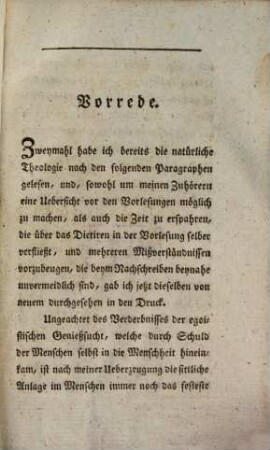 Vorrede.
Zweymahl habe ich bereits die natürliche
Theologie nach den folgenden Paragraphen
gelesen, und, sowohl um meinen Zuhörern
eine Uebersicht vor den Vorlesungen möglich
zu machen, als auch die Zeit zu erspahren,
die über das Dictiren in der Vorlesung selber
verfließt, und mehreren Mißverständnissen
vorzubeugen, die beym Nachschreiben beynahe
unvermeidlich sind, gab ich jetzt dieselben von
neuem durchgesehen in den Druck.
Ungeachtet des Verderbnisses der egoi-
stischen Genießsucht, welche durch Schuld
der Menschen selbst in die Menschheit hinein-
kam, ist nach meiner Ueberzeugung die sittliche
Anlage im Menschen immer noch das festeste